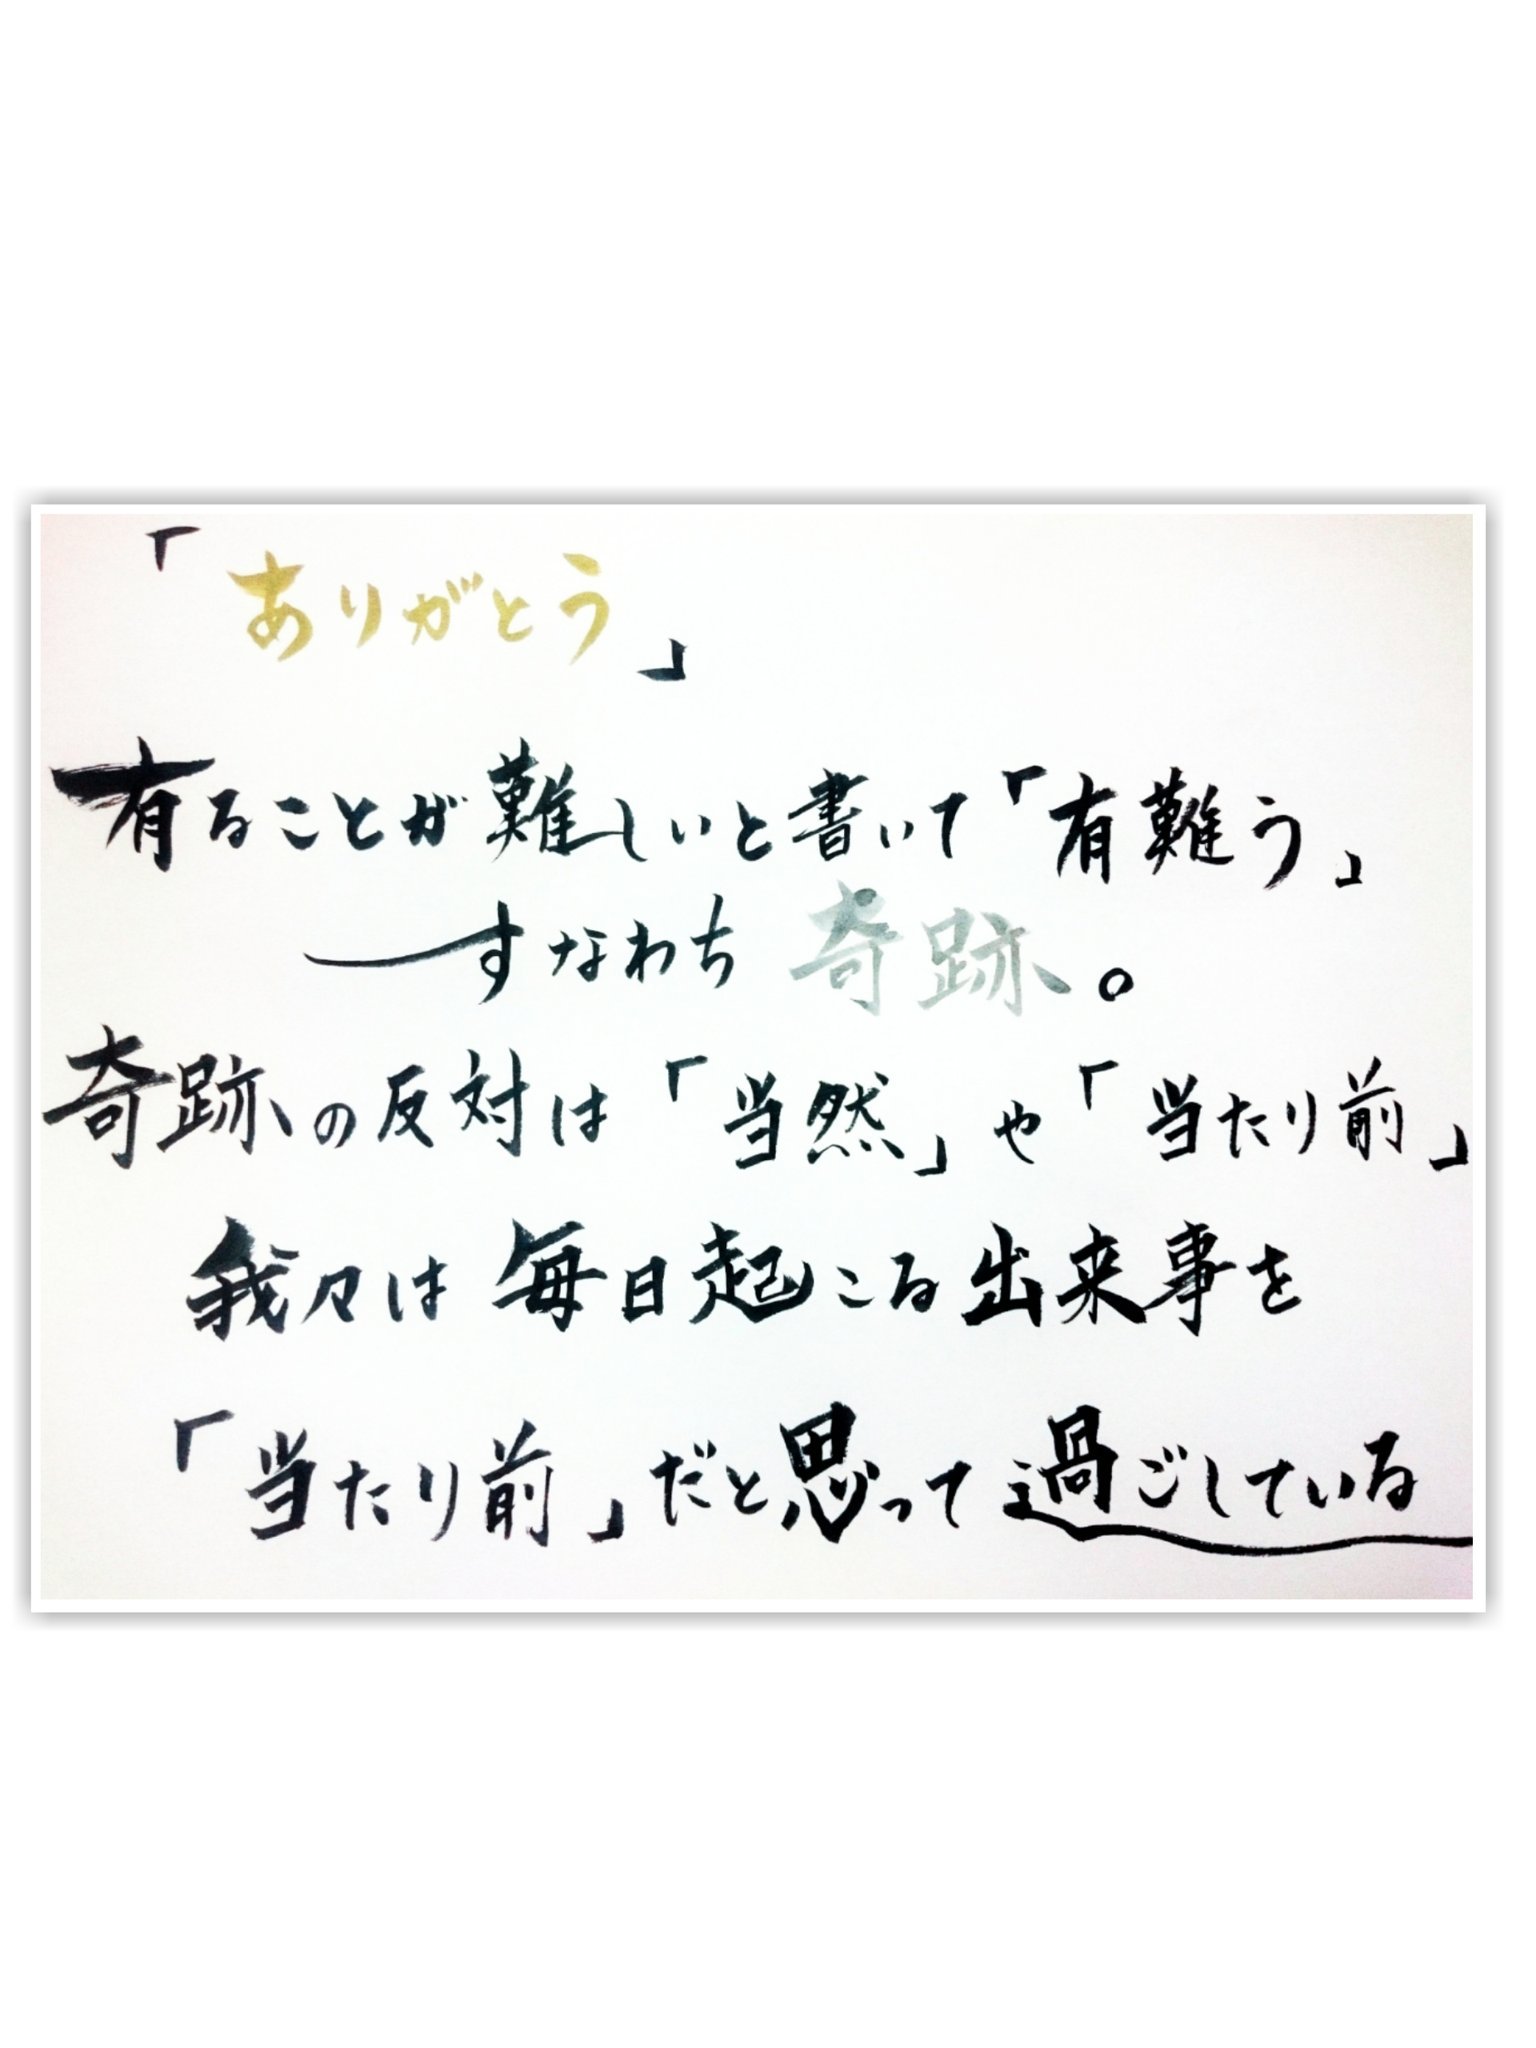 「ありがとう」
有ることが難しいと書いて「有難う」
すなわち奇跡。
奇跡の反対は「当然」や「当たり前」
我々は毎日起こる出来事を
「当たり前」だと思って過ごしている